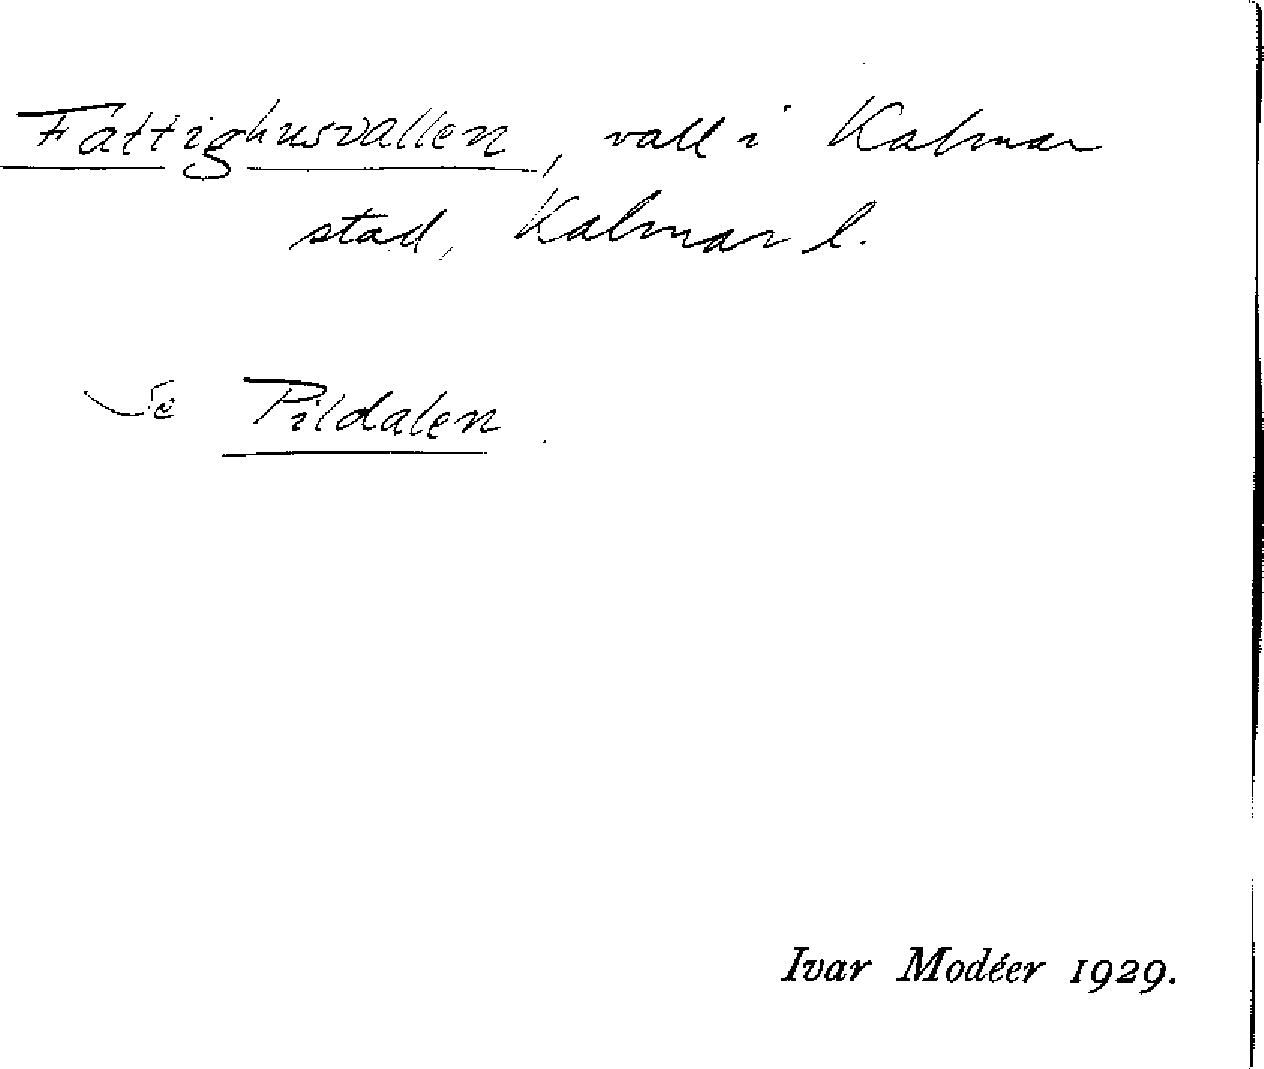 Fattighusvallen, vall i Kalmar
stad, Kalmar l.
Se Pildalen.
Ivar Modéer 1929.